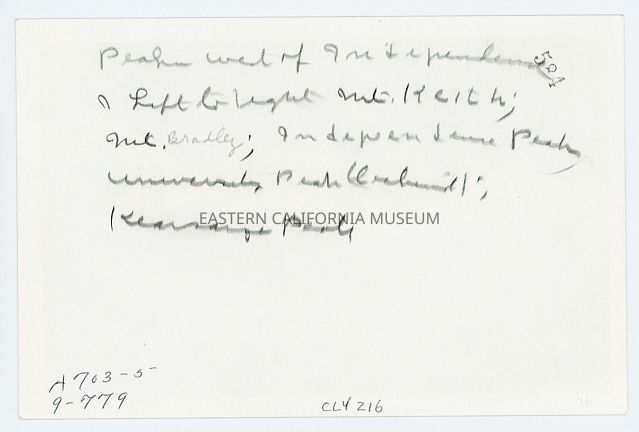 Peaks west of Independence
524
Left to right Mt. Keith;
Mt. Bradley; Independence Peak
University Peak (behind);
Kearsarge Peak
EASTERN CALIFORNIA MUSEUM
A703-5-
9-779
CLY 216